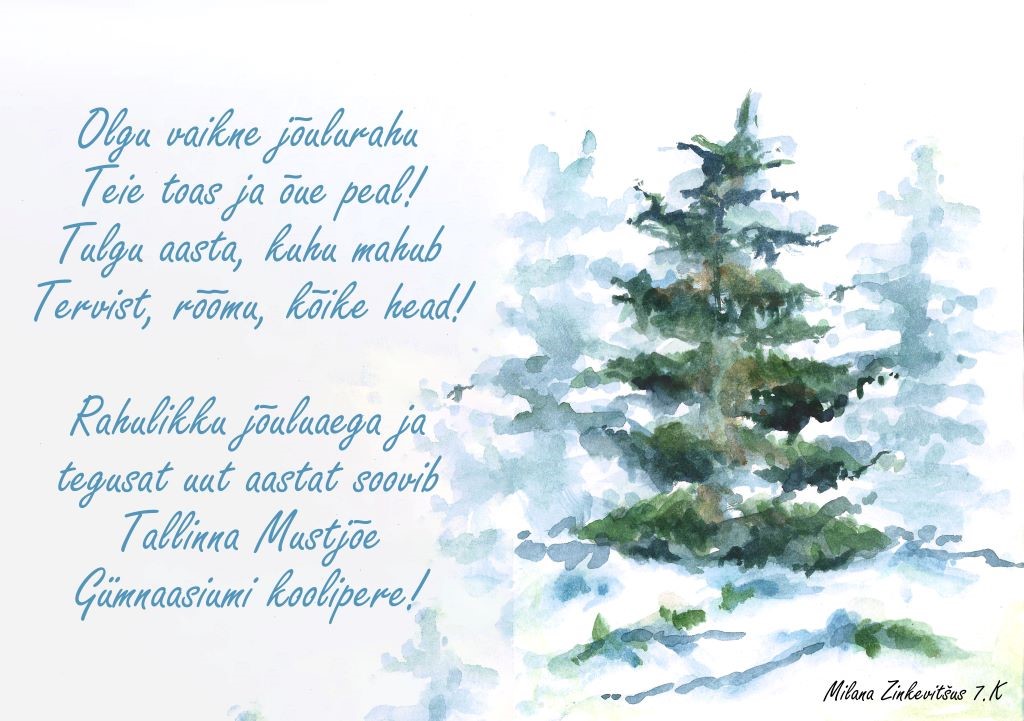 Olgu vaikne jõulurahu
Teie toas ja õue peal!
Tulgu aasta, kuhu mahub
Tervist, rõõmu, kõike head!
Rahulikku jõuluaega ja
tegusat uut aastat soovib
Tallinna Mustjõe
Gümnaasiumi koolipere!
Milana Zinkevitšus 7.K